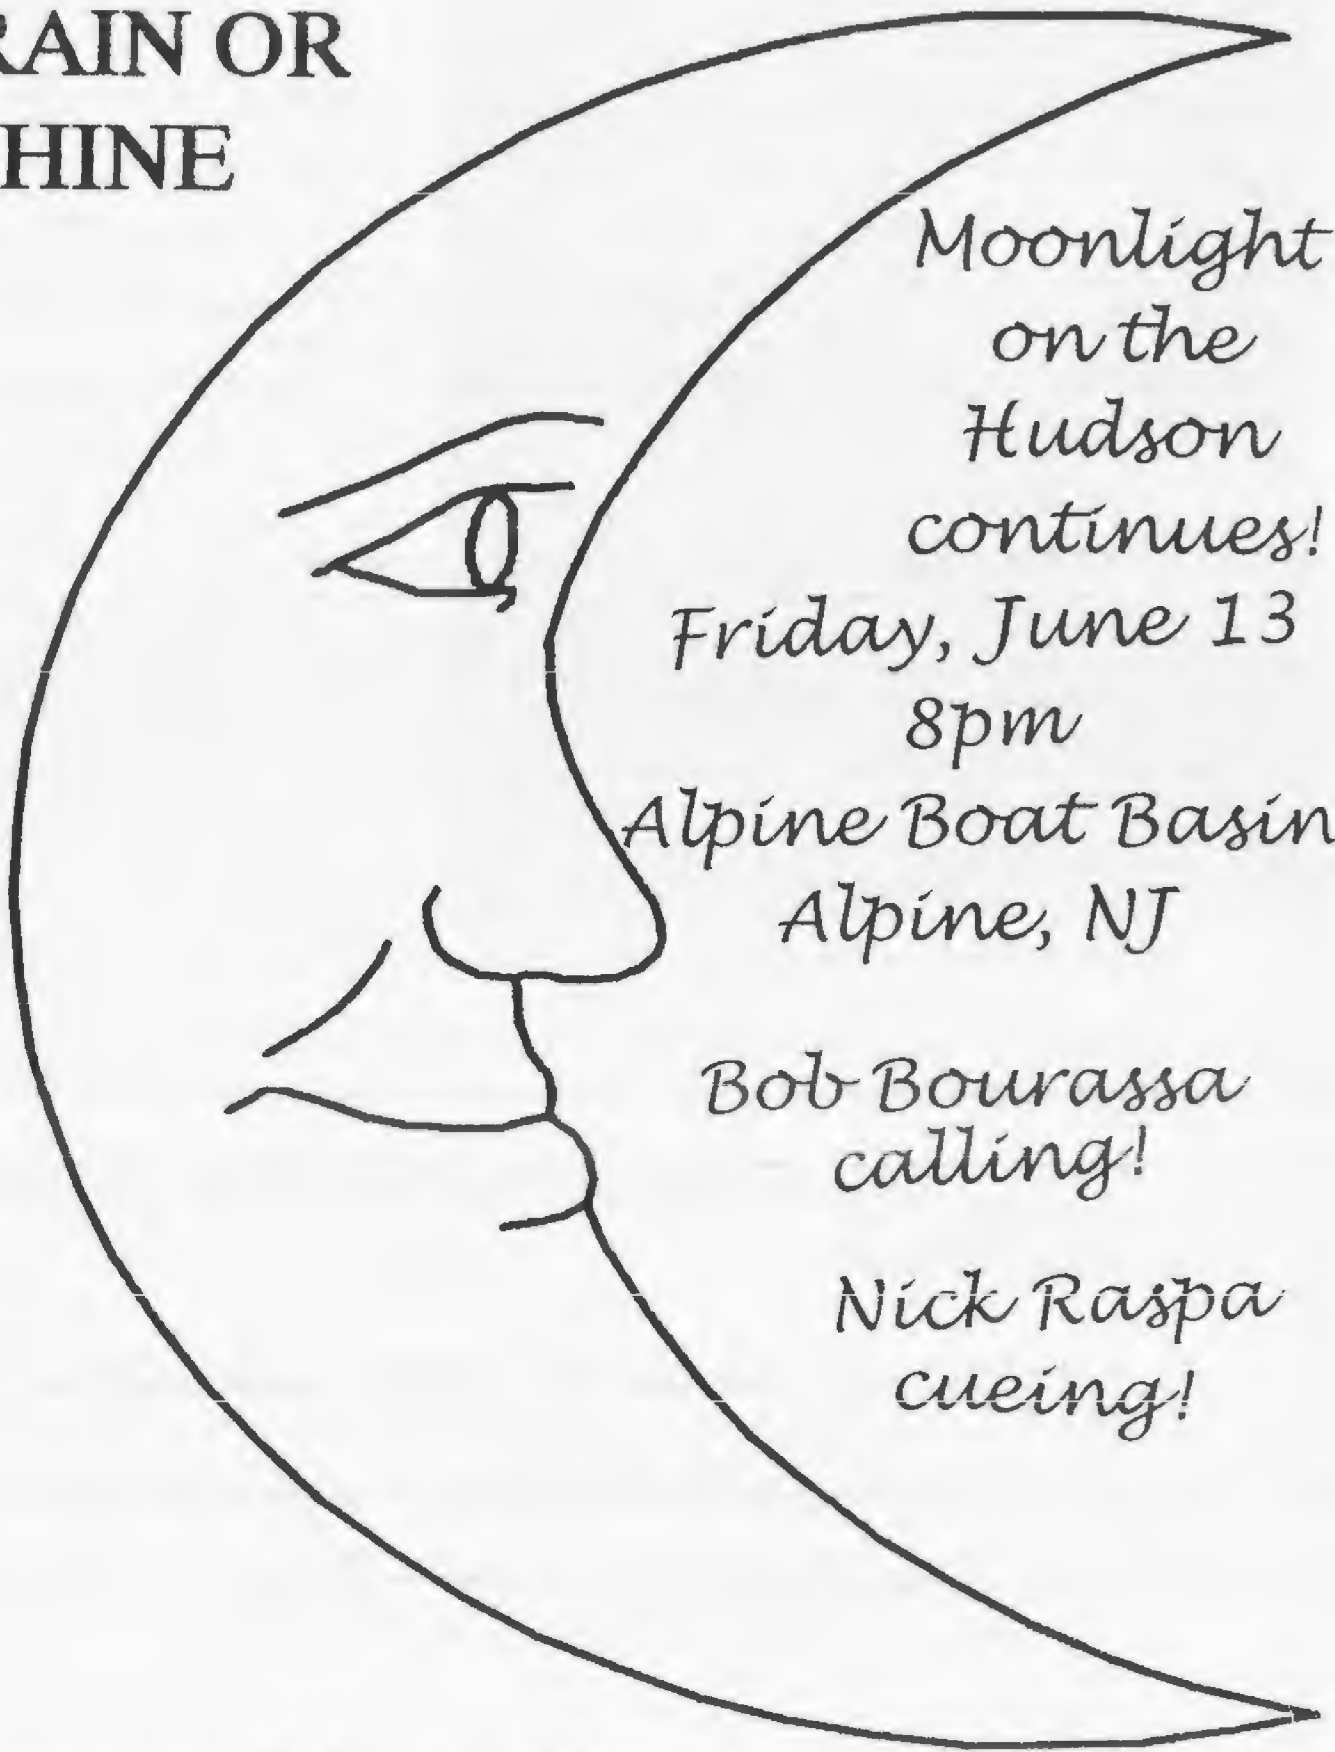 RAIN OR
HINE
Moonlight
on the
Hudson
continues!
Friday, June 13
8pm
Alpine Boat Basin
Alpine, NJ
Bob Bourassa
calling!
Nick Raspa
cueing!